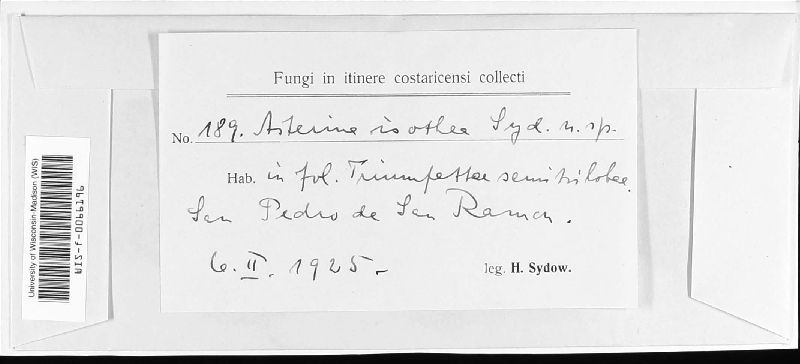 Fungi in itinere costaricensi collecti
No. 189. Asterina isothea Syd. n. sp.
Hab. in fol. Triumfettae semitrilobae.
San Pedro de San Ramon.
6. II. 1925 -
leg. H. Sydow.
University of Wisconsin-Madison (WIS)
WIS-f-0066196